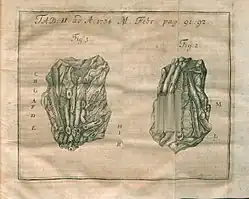 TAB. II ad A. 1734 M. Febr. pag. 91. 92.
Fig. 1.
Fig. 2.
C
B
G
A
F
D
E
H I K
M
L